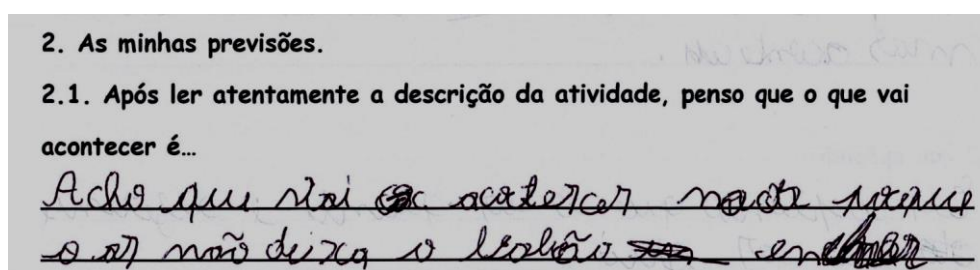 2. As minhas previsões.
2.1. Após ler atentamente a descrição da atividade, penso que o que vai
acontecer é...
Acho que vai acatercer nada porque
o ar não deixa o balão encher